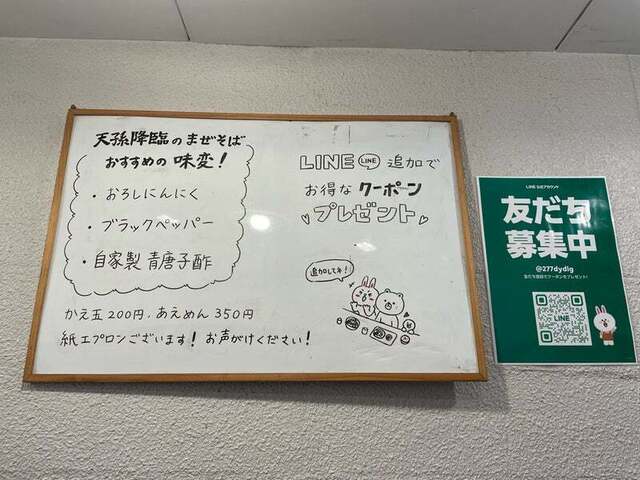 天孫降臨のまぜそば
おすすめの味変!
・おろしにんにく
・ブラックペッパー
・自家製 青唐子酢
かえ玉200円.あえめん350円
紙エプロンございます! お声がけください!
LINE LINE 追加で
お得な クーポーン
プレゼント
追加してネ!
LINE 公式アカウント
友だち
募集中
@277dydlg
友だち登録でクーポンをプレゼント!
LINE